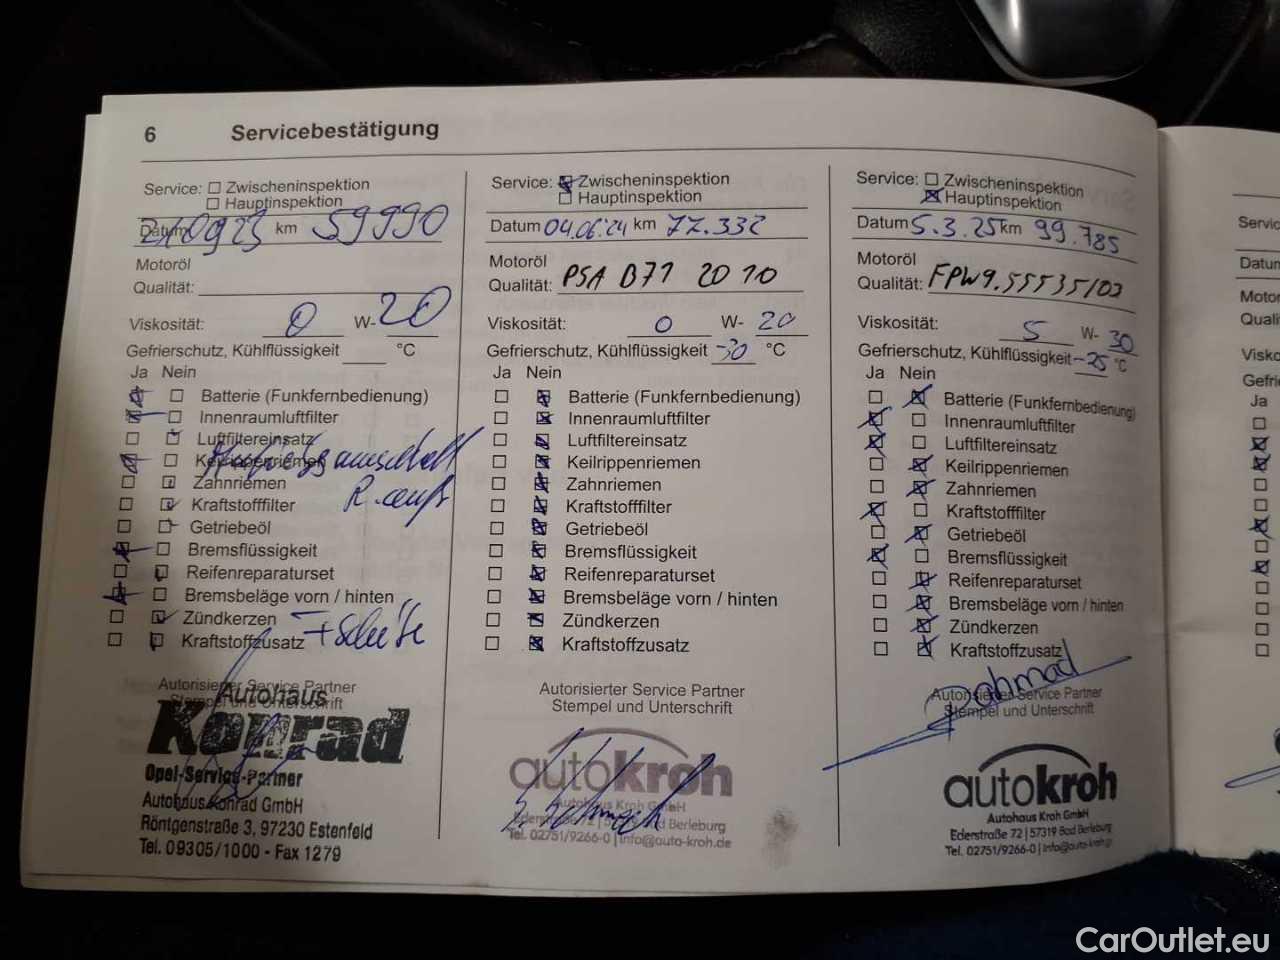 6 Servicebestätigung
Service: Zwischeninspektion
Hauptinspektion
Datum 21.09.23 km 59990
Motoröl
Qualität:
Viskosität: 0 W- 20
Gefrierschutz, Kühlflüssigkeit °C
Ja Nein
Batterie (Funkfernbedienung)
Innenraumluftfilter
Luftfiltereinsatz
Keilrippenriemen
Zahnriemen
Kraftstofffilter
Getriebeöl
Bremsflüssigkeit
Reifenreparaturset
Bremsbeläge vorn / hinten
Zündkerzen
Kraftstoffzusatz
Autorisierter Service Partner
Stempel und Unterschrift
Autohaus
Konrad
Opel-Service-Partner
Autohaus Konrad GmbH
Röntgenstraße 3, 97230 Estenfeld
Tel. 09305/1000 - Fax 1279
Service: Zwischeninspektion
Hauptinspektion
Datum 04.06.24 km 77.332
Motoröl
Qualität: PSA B71 2010
Viskosität: 0 W- 20
Gefrierschutz, Kühlflüssigkeit -30 °C
Ja Nein
Batterie (Funkfernbedienung)
Innenraumluftfilter
Luftfiltereinsatz
Keilrippenriemen
Zahnriemen
Kraftstofffilter
Getriebeöl
Bremsflüssigkeit
Reifenreparaturset
Bremsbeläge vorn / hinten
Zündkerzen
Kraftstoffzusatz
Autorisierter Service Partner
Stempel und Unterschrift
autokroh
Autohaus Kroh GmbH
Ederstraße 72 | 57319 Bad Berleburg
Tel. 02751/9266-0 | info@auto-kroh.de
Service: Zwischeninspektion
Hauptinspektion
Datum 5.3.25 km 99.785
Motoröl
Qualität: FPW9.55535/03
Viskosität: 5 W- 30
Gefrierschutz, Kühlflüssigkeit -25 °C
Ja Nein
Batterie (Funkfernbedienung)
Innenraumluftfilter
Luftfiltereinsatz
Keilrippenriemen
Zahnriemen
Kraftstofffilter
Getriebeöl
Bremsflüssigkeit
Reifenreparaturset
Bremsbeläge vorn / hinten
Zündkerzen
Kraftstoffzusatz
Autorisierter Service Partner
Stempel und Unterschrift
autokroh
Autohaus Kroh GmbH
Ederstraße 72 | 57319 Bad Berleburg
Tel. 02751/9266-0 | info@auto-kroh.
Datum
Ja
CarOutlet.eu